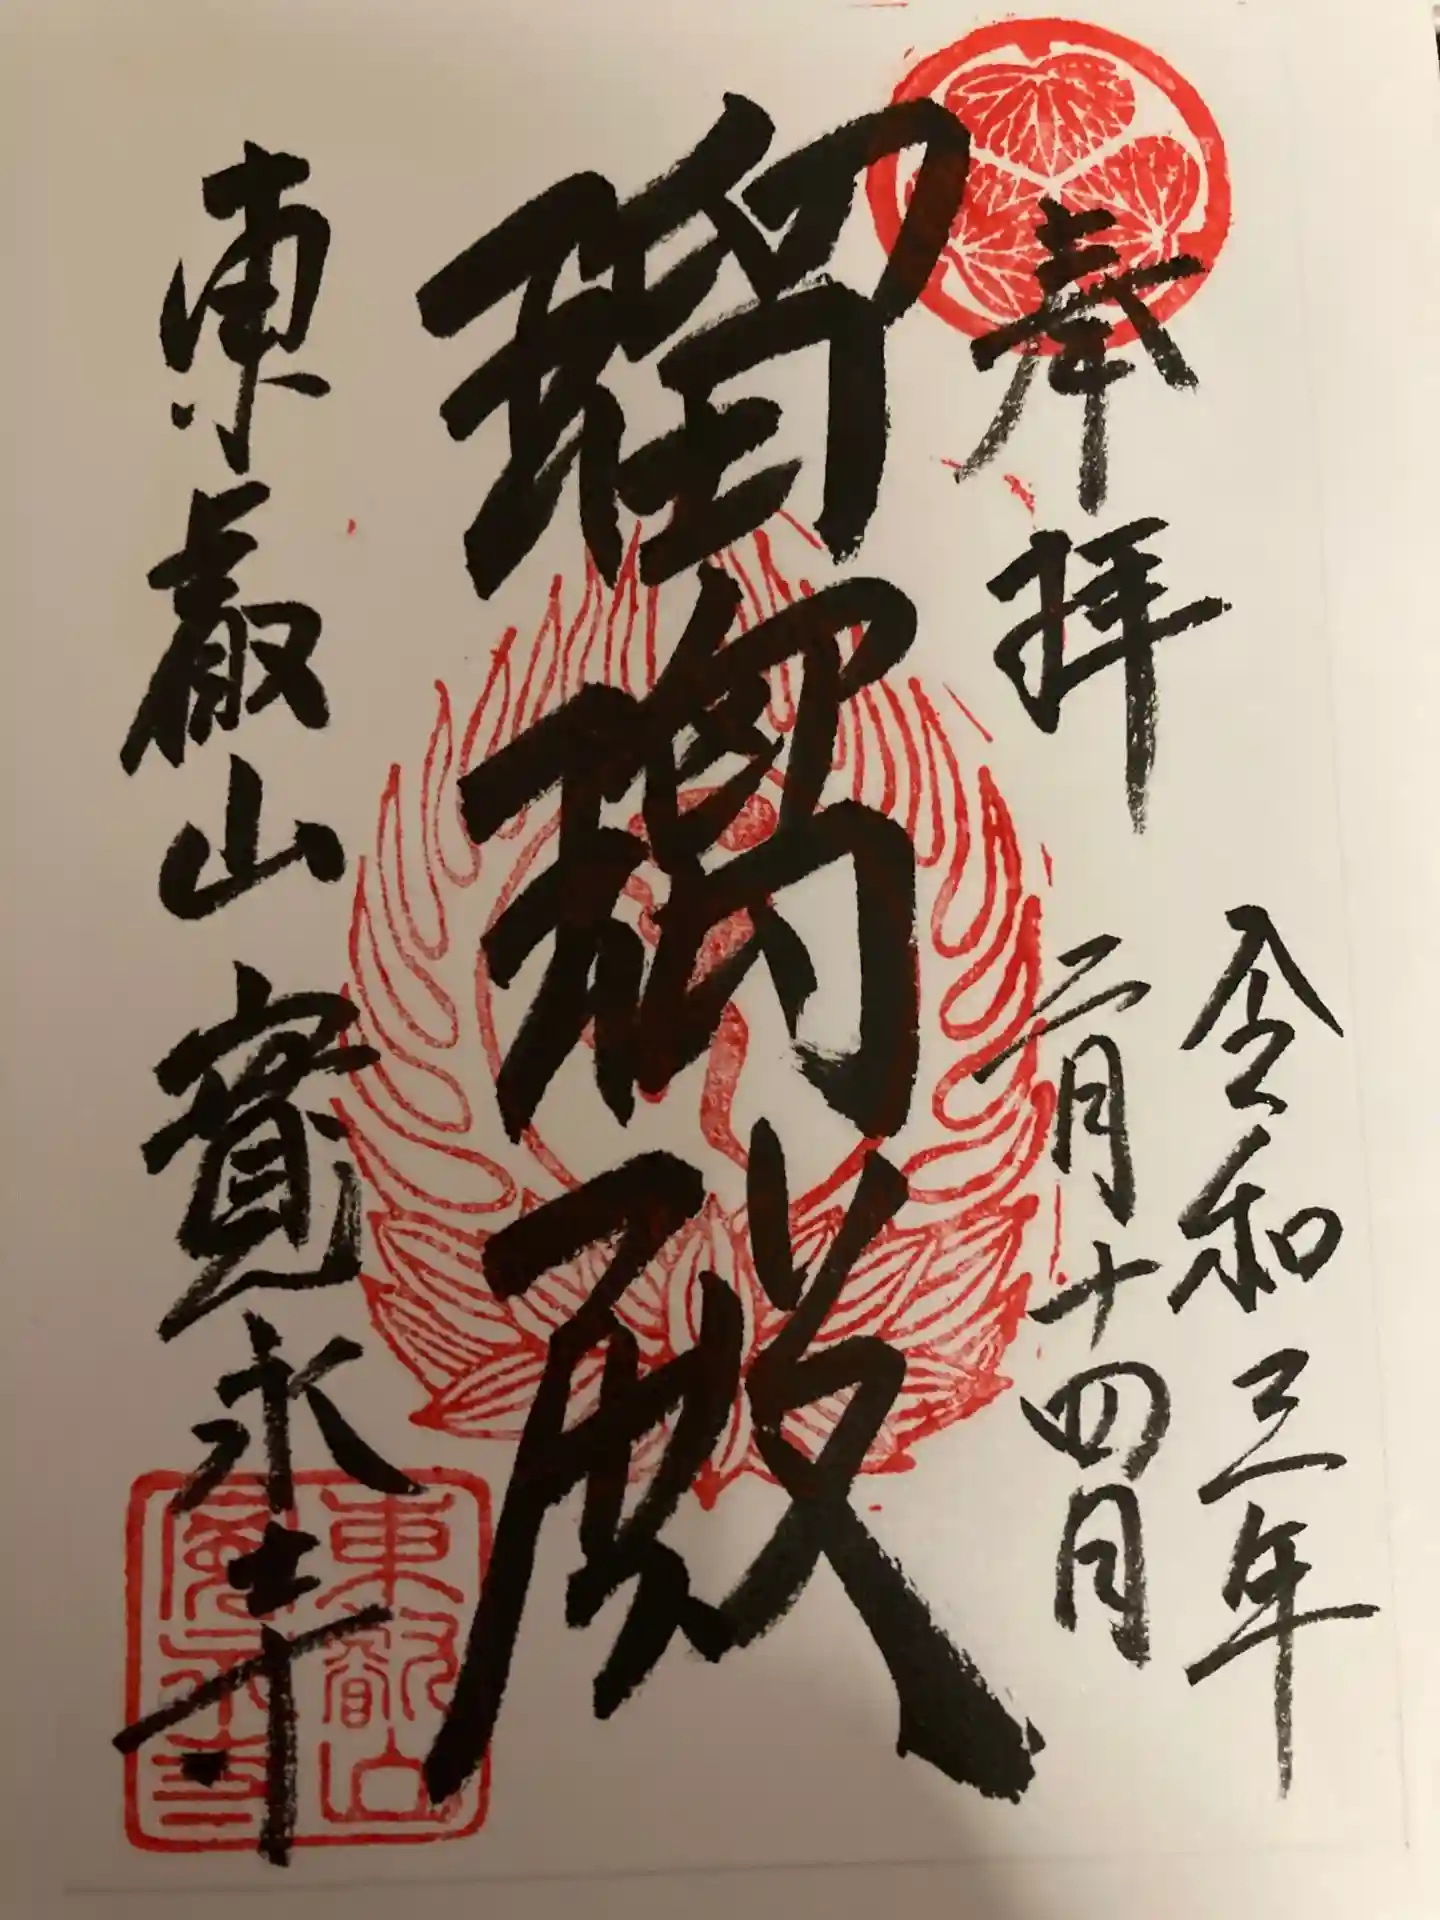 奉拝
令和三年
二月十四日
瑠璃殿
東叡山 寛永寺
東叡山
寛永寺